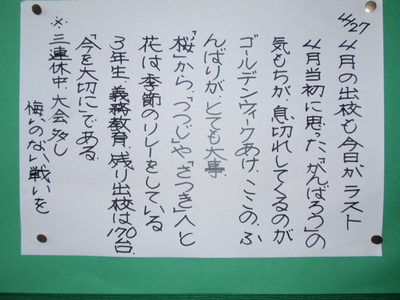 4/27
4月の出校も今日がラスト
4月当初に思った「がんばろう」の
気もちが、息切れしてくるのが
ゴールデンウィークあけ、ここの、ふ
んばりが、とても大事。
「桜」から、「つつじ」や「さつき」へと
花は、季節のリレーをしている
3年生、義務教育、残り出校は170台。
「今を大切に」である
※三連休中、大会多し
悔いのない戦いを